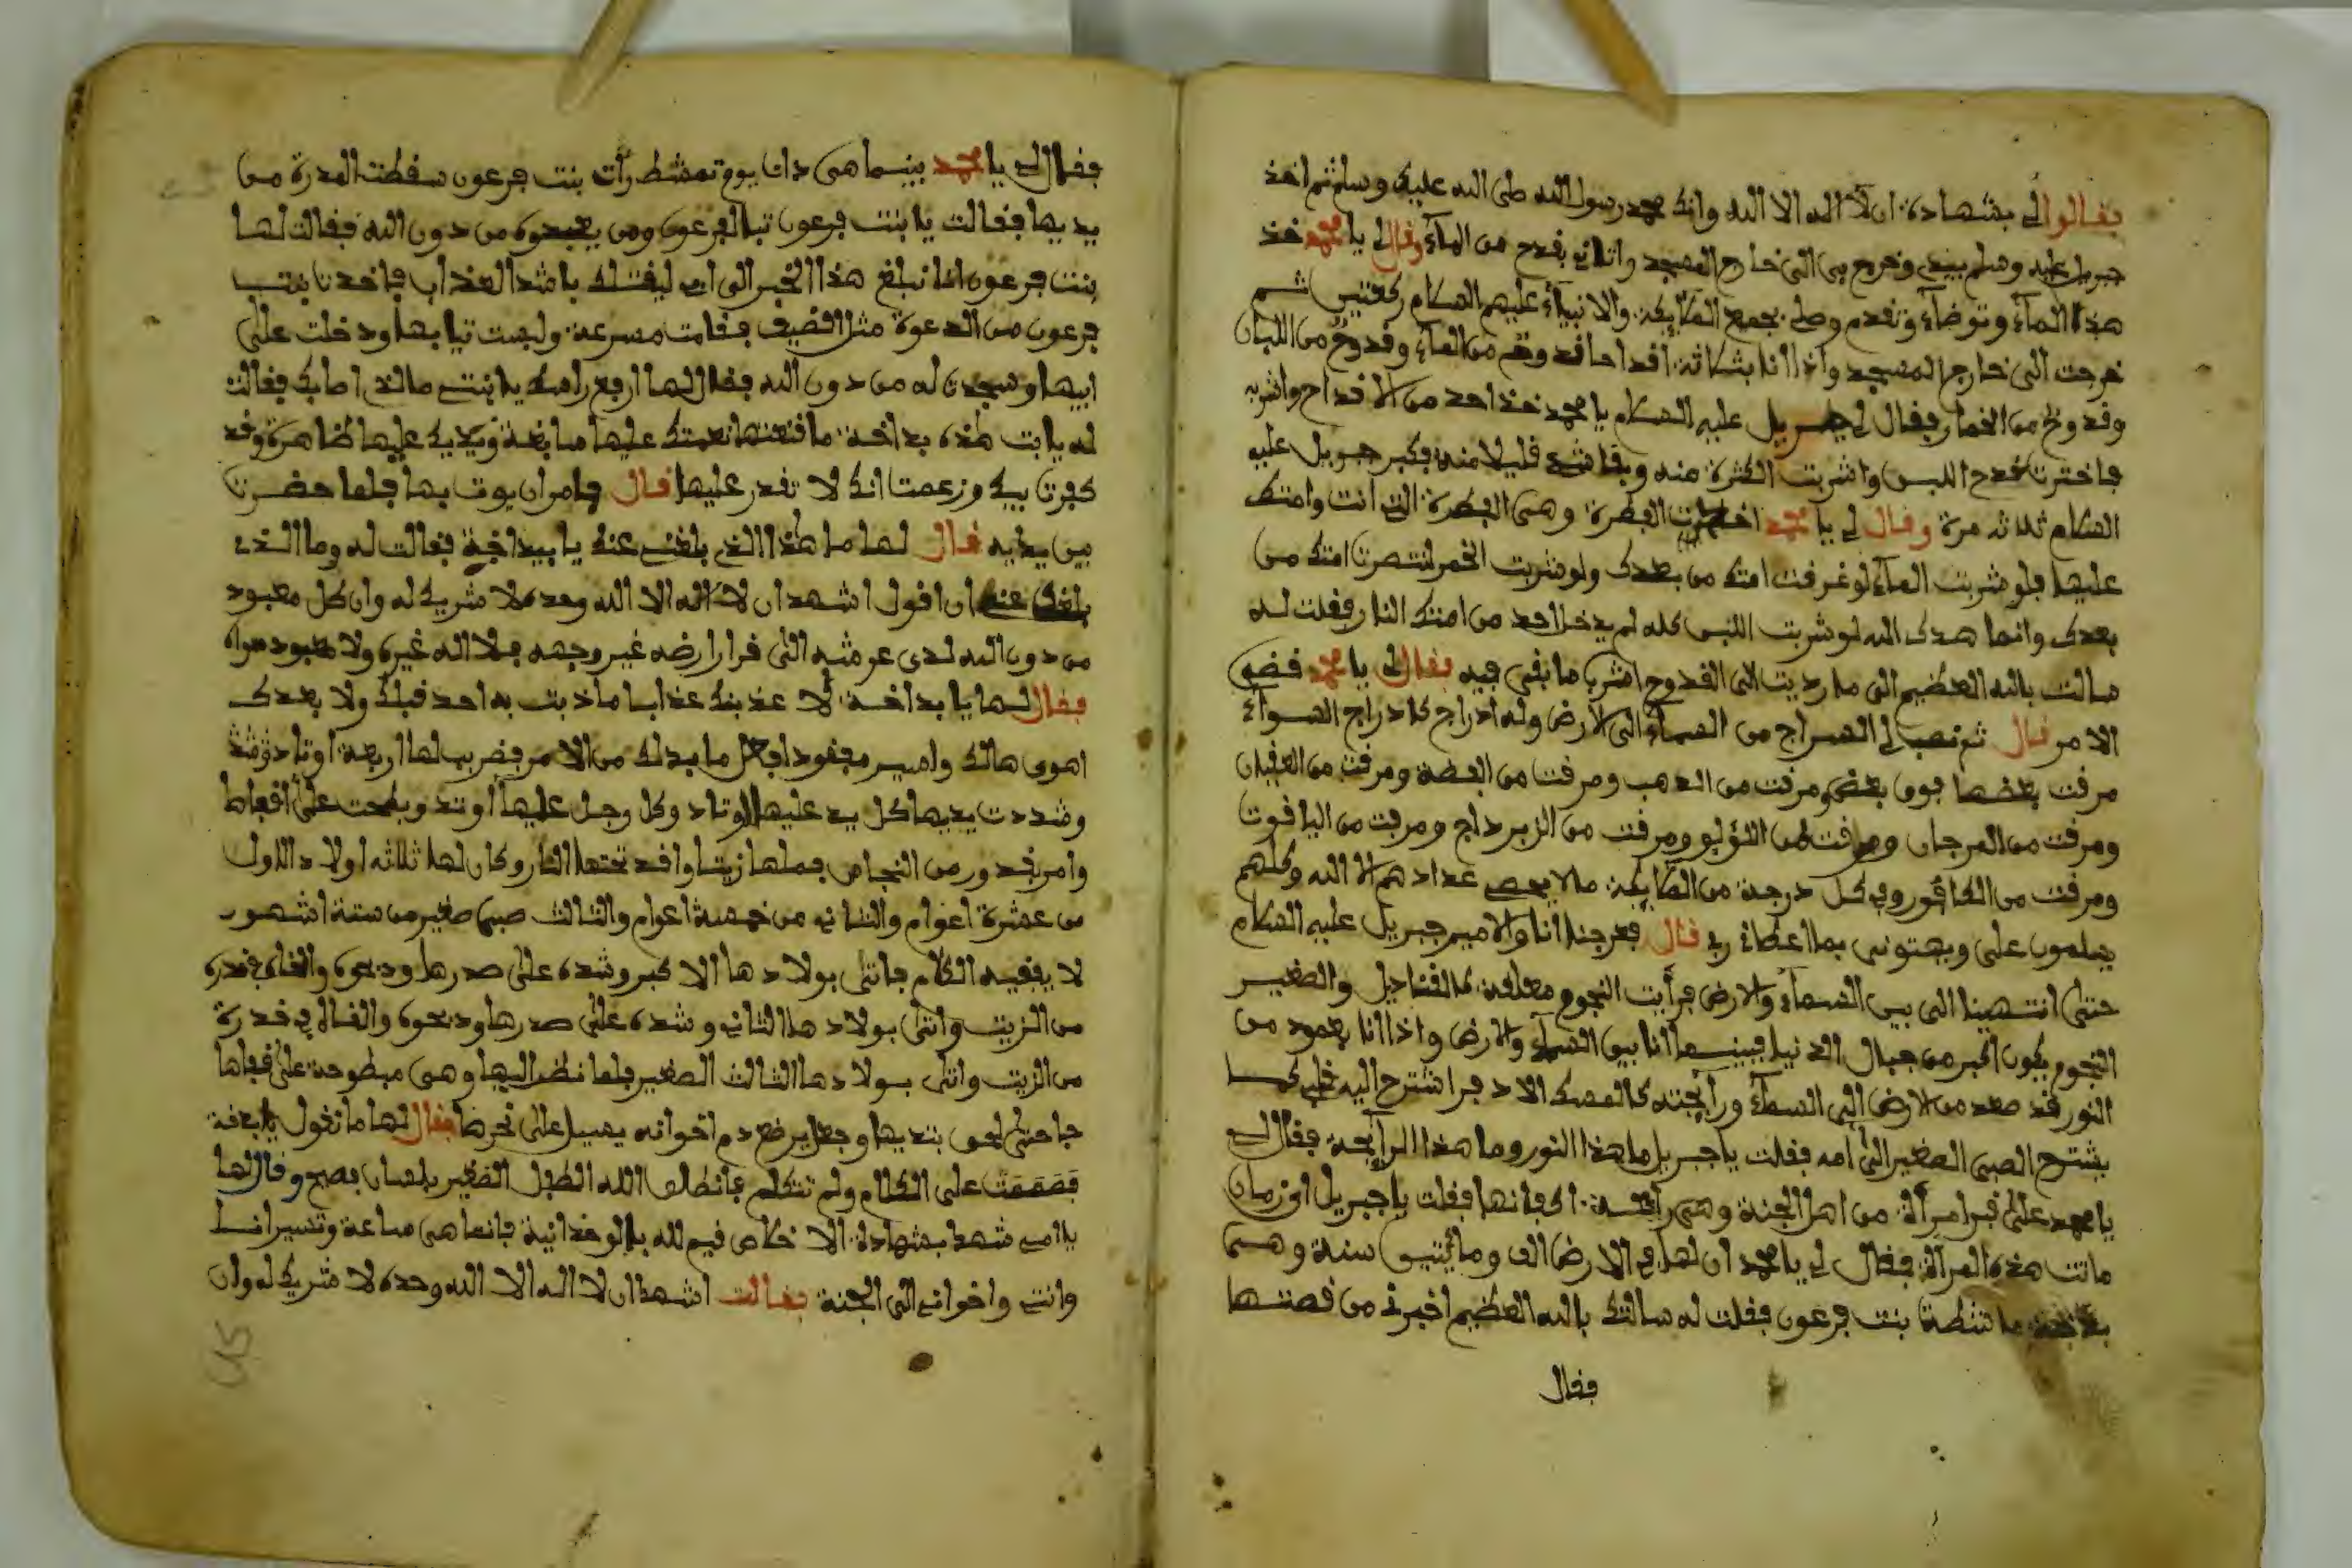 فقالوا لي بشهادة ان لا اله الا الله وانك محمد رسول الله صلى الله عليك وسلم ثم اخذ
جبريل عليه وسلم بيدي وخرج بي الى خارج المسجد واتاني بقدح من الماء وقال لي يا محمد خذ
هذا الماء وتوضاء وتقدم وصلي بجمع الملايكة والانبياء عليهم السلام ركعتين ثم
خرجت الى خارج المسجد واذا انا بثلاثة اقداحا قدوح من الماء وقدوح من اللبان
وقدوح من الخمار فقال لي جبريل عليه السلام يا محمد خذ احد من الاقداح واشربه
فاخترت قدح اللبن واشربت الكثرة منه وبقا شيء قليلا منه فكبر جبريل عليه
السلام ثلاثة مرة وقال لي يا محمد اخترت الفطرة وهي الفطرة التي انت وامتك
عليها فلو شربت الماء لو غرفت امتك من بعدك ولو شربت الخمر لنتصرت امتك من
بعدك وانما هدى الله لو شربت اللبن كله لم يدخل احد من امتك النار فقلت له
سالت بالله العظيم الى ما رديت الى القدوح اشرب ما بقي فيه فقال لي يا محمد قضي
الامر قال ثم نصب لي المعراج من السماء الى الارض وله ادراج كادراج السواء
مرقت بعضها فوق بعض ومرقت من الذهب ومرقت من الفضة ومرقت من العقيان
ومرقت من المرجان ومرقت من اللؤلو ومرقت من الزبرداج ومرقت من الياقوت
ومرقت من الكافور وفي كل درجة من الملايكة ما لا يحصي عدادهم الا الله وكلهم
يسلمون علي ويهنوني بما اعطاني ربي قال فعرجنا انا والامير جبريل عليه السلام
حتى انتهينا الى بين السماء والارض فرأيت النجوم معلقة كالقناديل والصغير
النجوم يكون اكبر من جبال الدنيا فبينما انا بين السماء والارض واذا انا بعمود من
النور قد صعد من الارض الى السماء ورايحته كالمسك الادفر اشترح اليه قلبي كما
يشترح الصبي الصغير الى امه فقلت يا جبريل ما هذا النور وما هذا الرايحة فقال لي
يا محمد على قبر امرأة من اهل الجنة وهي رايحة اكفانها فقلت يا جبريل اي زمان
ماتت هذه المرأة فقال لي يا محمد ان لها في الارض الف ومايتين سنة وهي
بداخة ماشطة بنت فرعون فقلت له سالتك بالله العظيم اخبرني من قصتها
فقال
فقال لي يا محمد بينما هي ذات يوم تمشط رأت بنت فرعون سقطت المدرة من
يديها فقالت يا بنت فرعون تبا لفرعون ومن يعبدوه من دون الله فقالت لها
بنت فرعون انا نبلغ هذا الخبر الى ابي ليقتلك باشد العذاب فاخدتا بنت
فرعون من الدعوة مثل القضيف فقامت مسرعة ولبست تيابها ودخلت على
ابيها وسجدت له من دون الله فقال لها ارفع راسك يا بنتي ما الذي اصابك فقالت
له يا ابت هذه بداخة ما نعتها نعمتك عليها سابغة ويديك عليها ظاهرة وقد
كفرت بيك وزعمت انك لا تقدر عليها قال فامر ان يوت بها فلما حضرت
بين يديه قال لها ما هذا الذي بلغني عنك يا بيداخة فقالت له وما الذي
بلغك عني ان اقول اشهد ان لا اله الا الله وحده لا شريك له وان كل معبود
من دون الله لدى عرشه الى قرار ارضه غير وجهه فلا اله غيره ولا معبود سواه
فقال لها يا بداخة لا عذبنك عذابا ما ذبت به احد قبلك ولا بعدك
اهوى هالك وامير مجفود افعل ما بدلك من الامر فضرب لها اربعة اوتاد وشد
وشددت يديها كل يد عليها الوتاد وكل وجل عليها أوتد وبطحت على أقفاها
وامر بقدور من النحاس فملها زيتا واقد تحتها النار وكان لها ثلاثة اولاد الاول
من عشرة اعوام والثاني من خمسة اعوام والثالث صبي صغير من ستة اشهور
لا يفقيه الكلام فاتى بولادها الاكبر وشده على صدرها ودبحوه والقاه في قدرة
من الزيت وأتى بولادها الثاني وشده على صدرها ودبحوه والقاه في قدرة
من الزيت وأتى بولادها الثالث الصغير فلما نظر اليها وهي مبطوحة على قفاها
جا حتى لعق بتديها وجعل يرضع دم اخوانه يسيل على نحرها فقال لها ما تقول يا بداخة
فصممت على الكلام ولم تتكلم فانطلق الله الطفل الصغير بلسان فصيح وقال لها
يا امي شهد بشهادة الاخلاص فيم لله بالوحدانية فانما هي ساعة وتسير انا
وانتي واخواني الى الجنة فقالت اشهد ان لا اله الا الله وحده لا شريك له وان